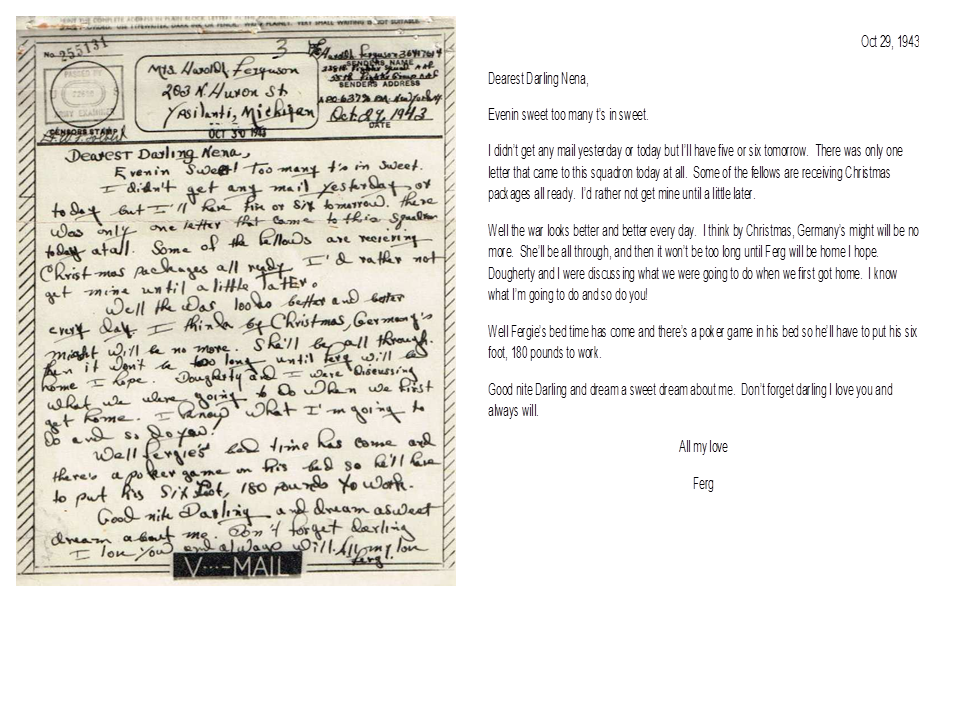 No. 255131
3
Mrs Harold Ferguson
203 N. Huron St
Ypsilanti, Michigan
OCT 30 1943
CENSORS STAMP
SENDERS NAME
SENDERS ADDRESS
Oct 29, 1943
DATE
Dearest Darling Nena,
Evenin Sweet Too many t's in sweet.
I didn't get any mail yesterday, or
today but I'll have five or six tomorrow. there
was only one letter that came to this squadron
today at all. Some of the fellows are recieving
Christmas packages all ready I'd rather not
get mine until a little later.
Well the war looks better and better
every day I think by Christmas, Germany's
might will be no more. She'll be all through.
then it won't be too long until Ferg will be
home I hope. Dougherty and I were discussing
what we were going to do when we first
get home. I know what I'm going to
do and so do you!
Well Fergie's bed time has come and
there's a poker game on his bed so he'll have
to put his six foot, 180 pounds to work.
Good nite Darling and dream a sweet
dream about me. Don't forget darling
I love you and always will. All my love
Ferg.
V···-MAIL
Oct 29, 1943
Dearest Darling Nena,
Evenin sweet too many t's in sweet.
I didn't get any mail yesterday or today but I'll have five or six tomorrow. There was only one
letter that came to this squadron today at all. Some of the fellows are receiving Christmas
packages all ready. I'd rather not get mine until a little later.
Well the war looks better and better every day. I think by Christmas, Germany's might will be no
more. She'll be all through, and then it won't be too long until Ferg will be home I hope.
Dougherty and I were discussing what we were going to do when we first got home. I know
what I'm going to do and so do you!
Well Fergie's bed time has come and there's a poker game in his bed so he'll have to put his six
foot, 180 pounds to work.
Good nite Darling and dream a sweet dream about me. Don't forget darling I love you and
always will.
All my love
Ferg